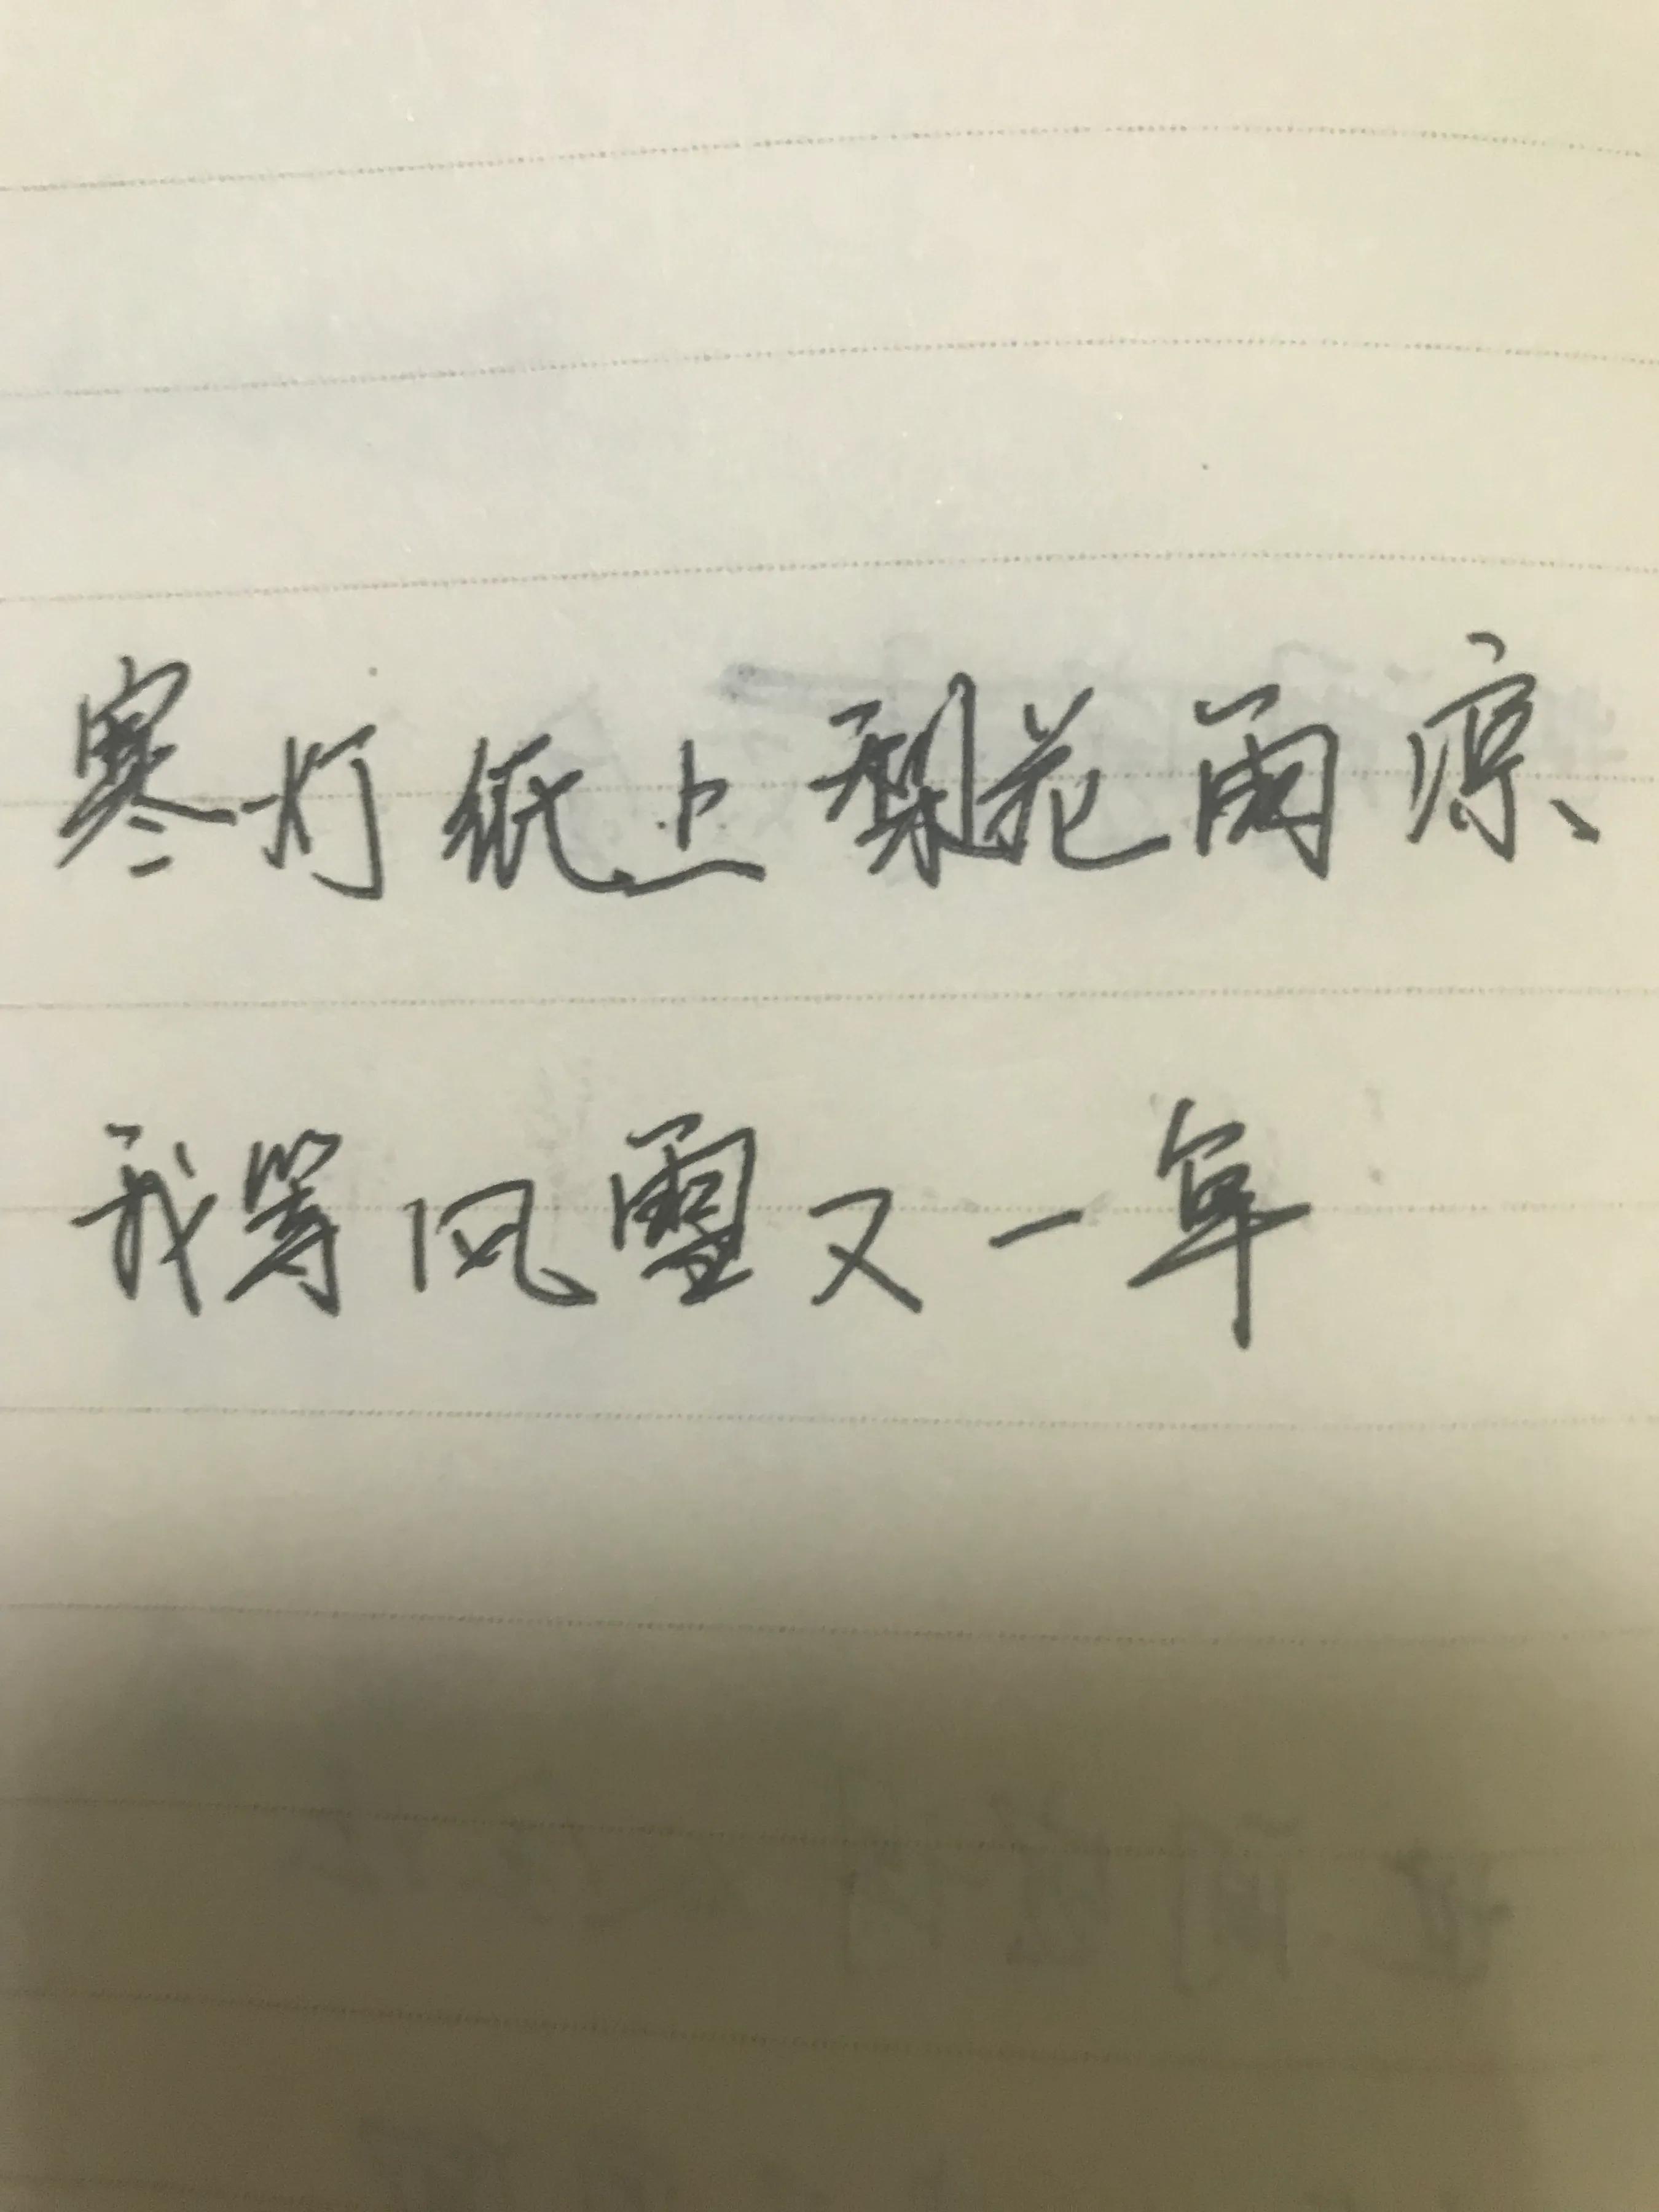 寒灯纸上梨花雨凉
我等风雪又一年